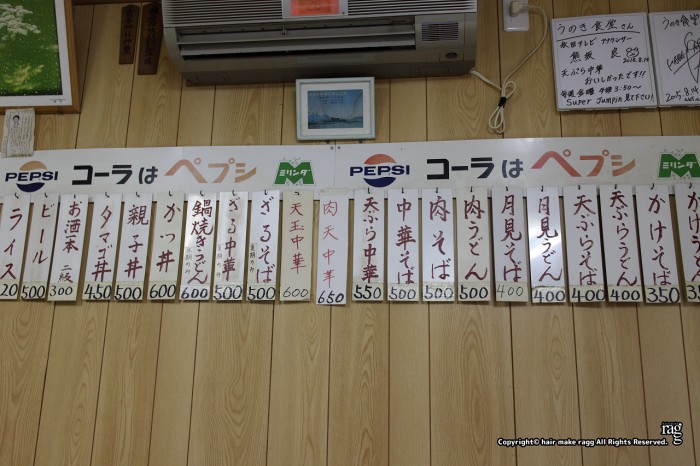 うのき食堂さん
秋田テレビ アナウンサー
熊坂 良
2015.8.14
天ぷら中華
おいしかったです!!
毎週金曜 午後3:50～
Super Jumpin 見て下さい!
うのき食堂
2015.8.14
PEPSI コーラは ペプシ ミリンダ M
PEPSI コーラは ペプシ ミリンダ M
かけそば 350
天ぷらうどん 400
天ぷらそば 400
月見うどん 400
月見そば 400
肉うどん 500
肉そば 500
中華そば 500
天ぷら中華 550
肉天中華 650
天玉中華 600
ざるそば 夏期のみ 500
ざる中華 夏期のみ 500
鍋焼きうどん 冬期のみ 600
かつ丼 600
親子丼 500
タマゴ丼 450
お酒本二級 300
ビール 500
ライス 20
rag
Copyright© hair make ragg All Rights Reserved.